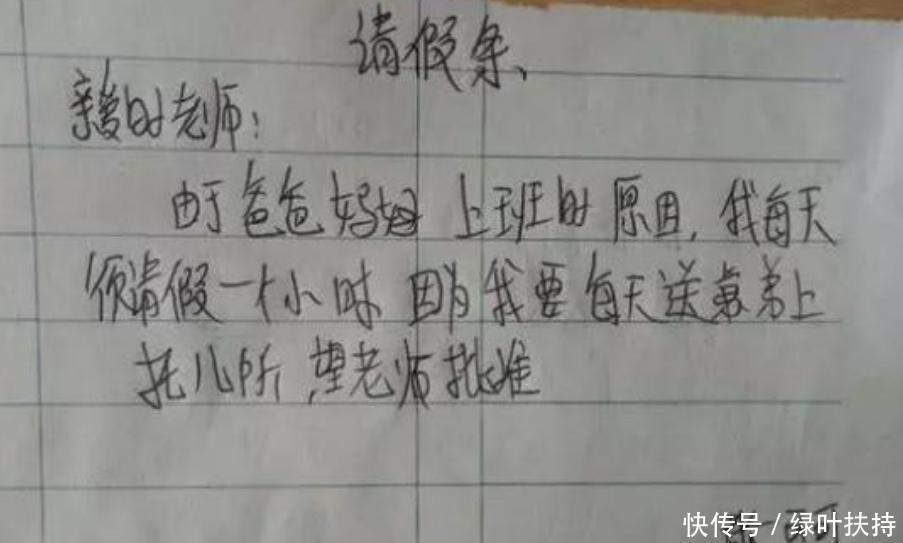 请假条、
亲爱的老师：
由于爸爸妈妈上班的原因，我每天
须请假一个小时因为我要每天送弟弟上
托儿所，望老师批准
快传号/绿叶扶持